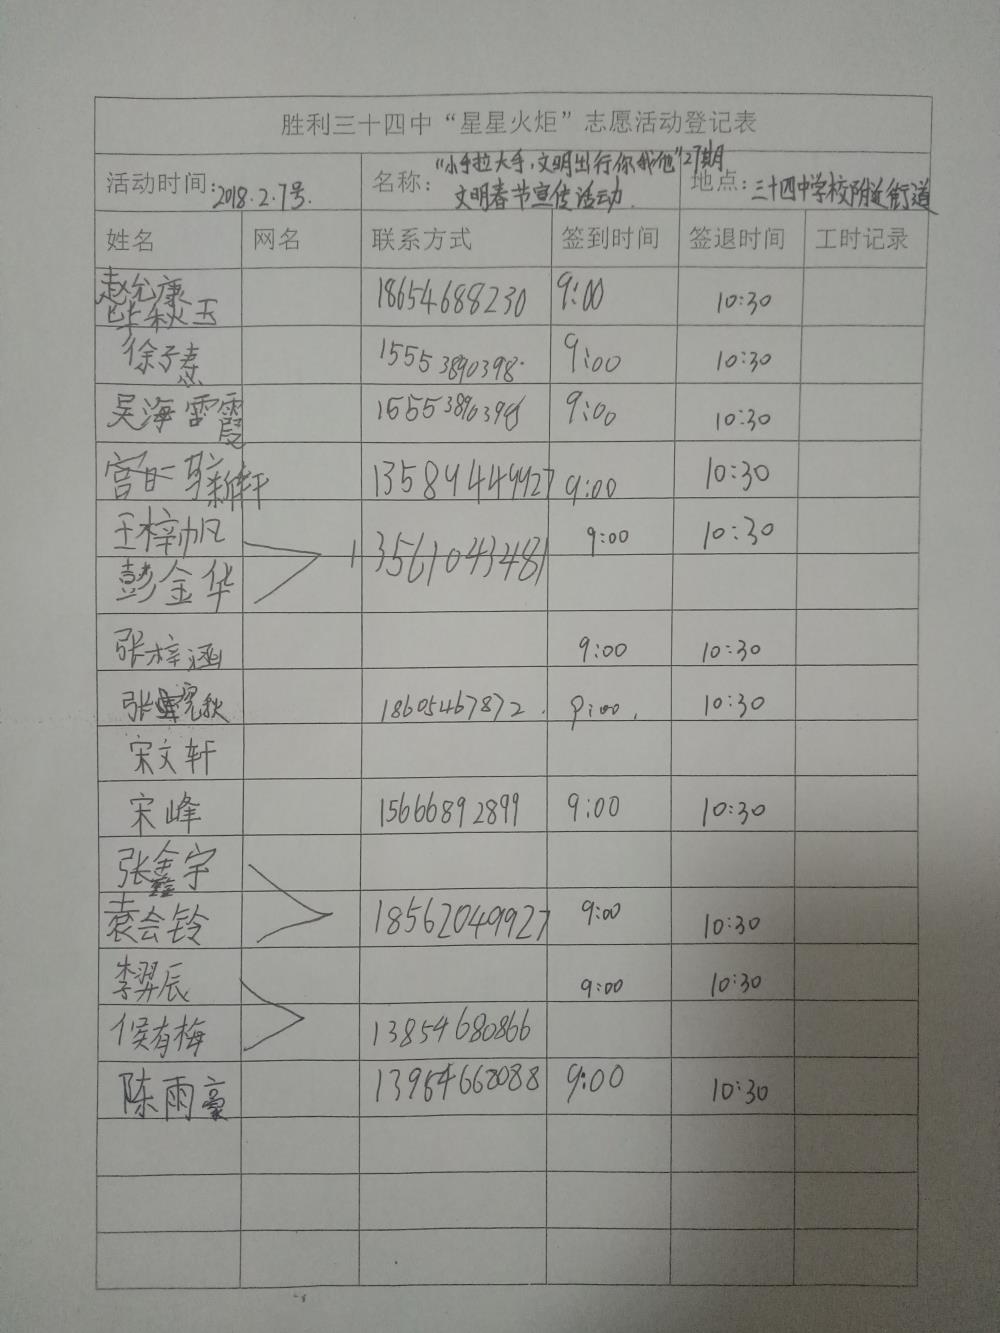 胜利三十四中“星星火炬”志愿活动登记表
活动时间:2018.2.7号. 名称:“小手拉大手,文明出行你我他”27期 文明春节宣传活动. 地点:三十四中学校附近街道
姓名 网名 联系方式 签到时间 签退时间 工时记录
赵允康
毕秋玉 18654688230 9:00 10:30
徐子惠 15553890398 9:00 10:30
吴海霞 15553890398 9:00 10:30
宫 新轩 13589449927 9:00 10:30
王梓帆 9:00 10:30
彭金华 13561043481
张梓涵 9:00 10:30
张 秋 18605467872. 9:00. 10:30
宋文轩
宋峰 15666892899 9:00 10:30
张鑫宇
袁会铃 18562049927 9:00 10:30
李羿辰 9:00 10:30
侯有梅 13854680866
陈雨豪 13954668088 9:00 10:30